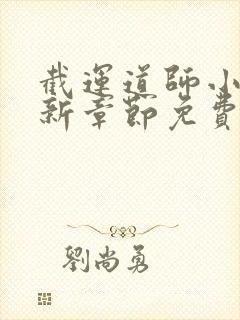 截運道師小
新章節免費
劉尚勇